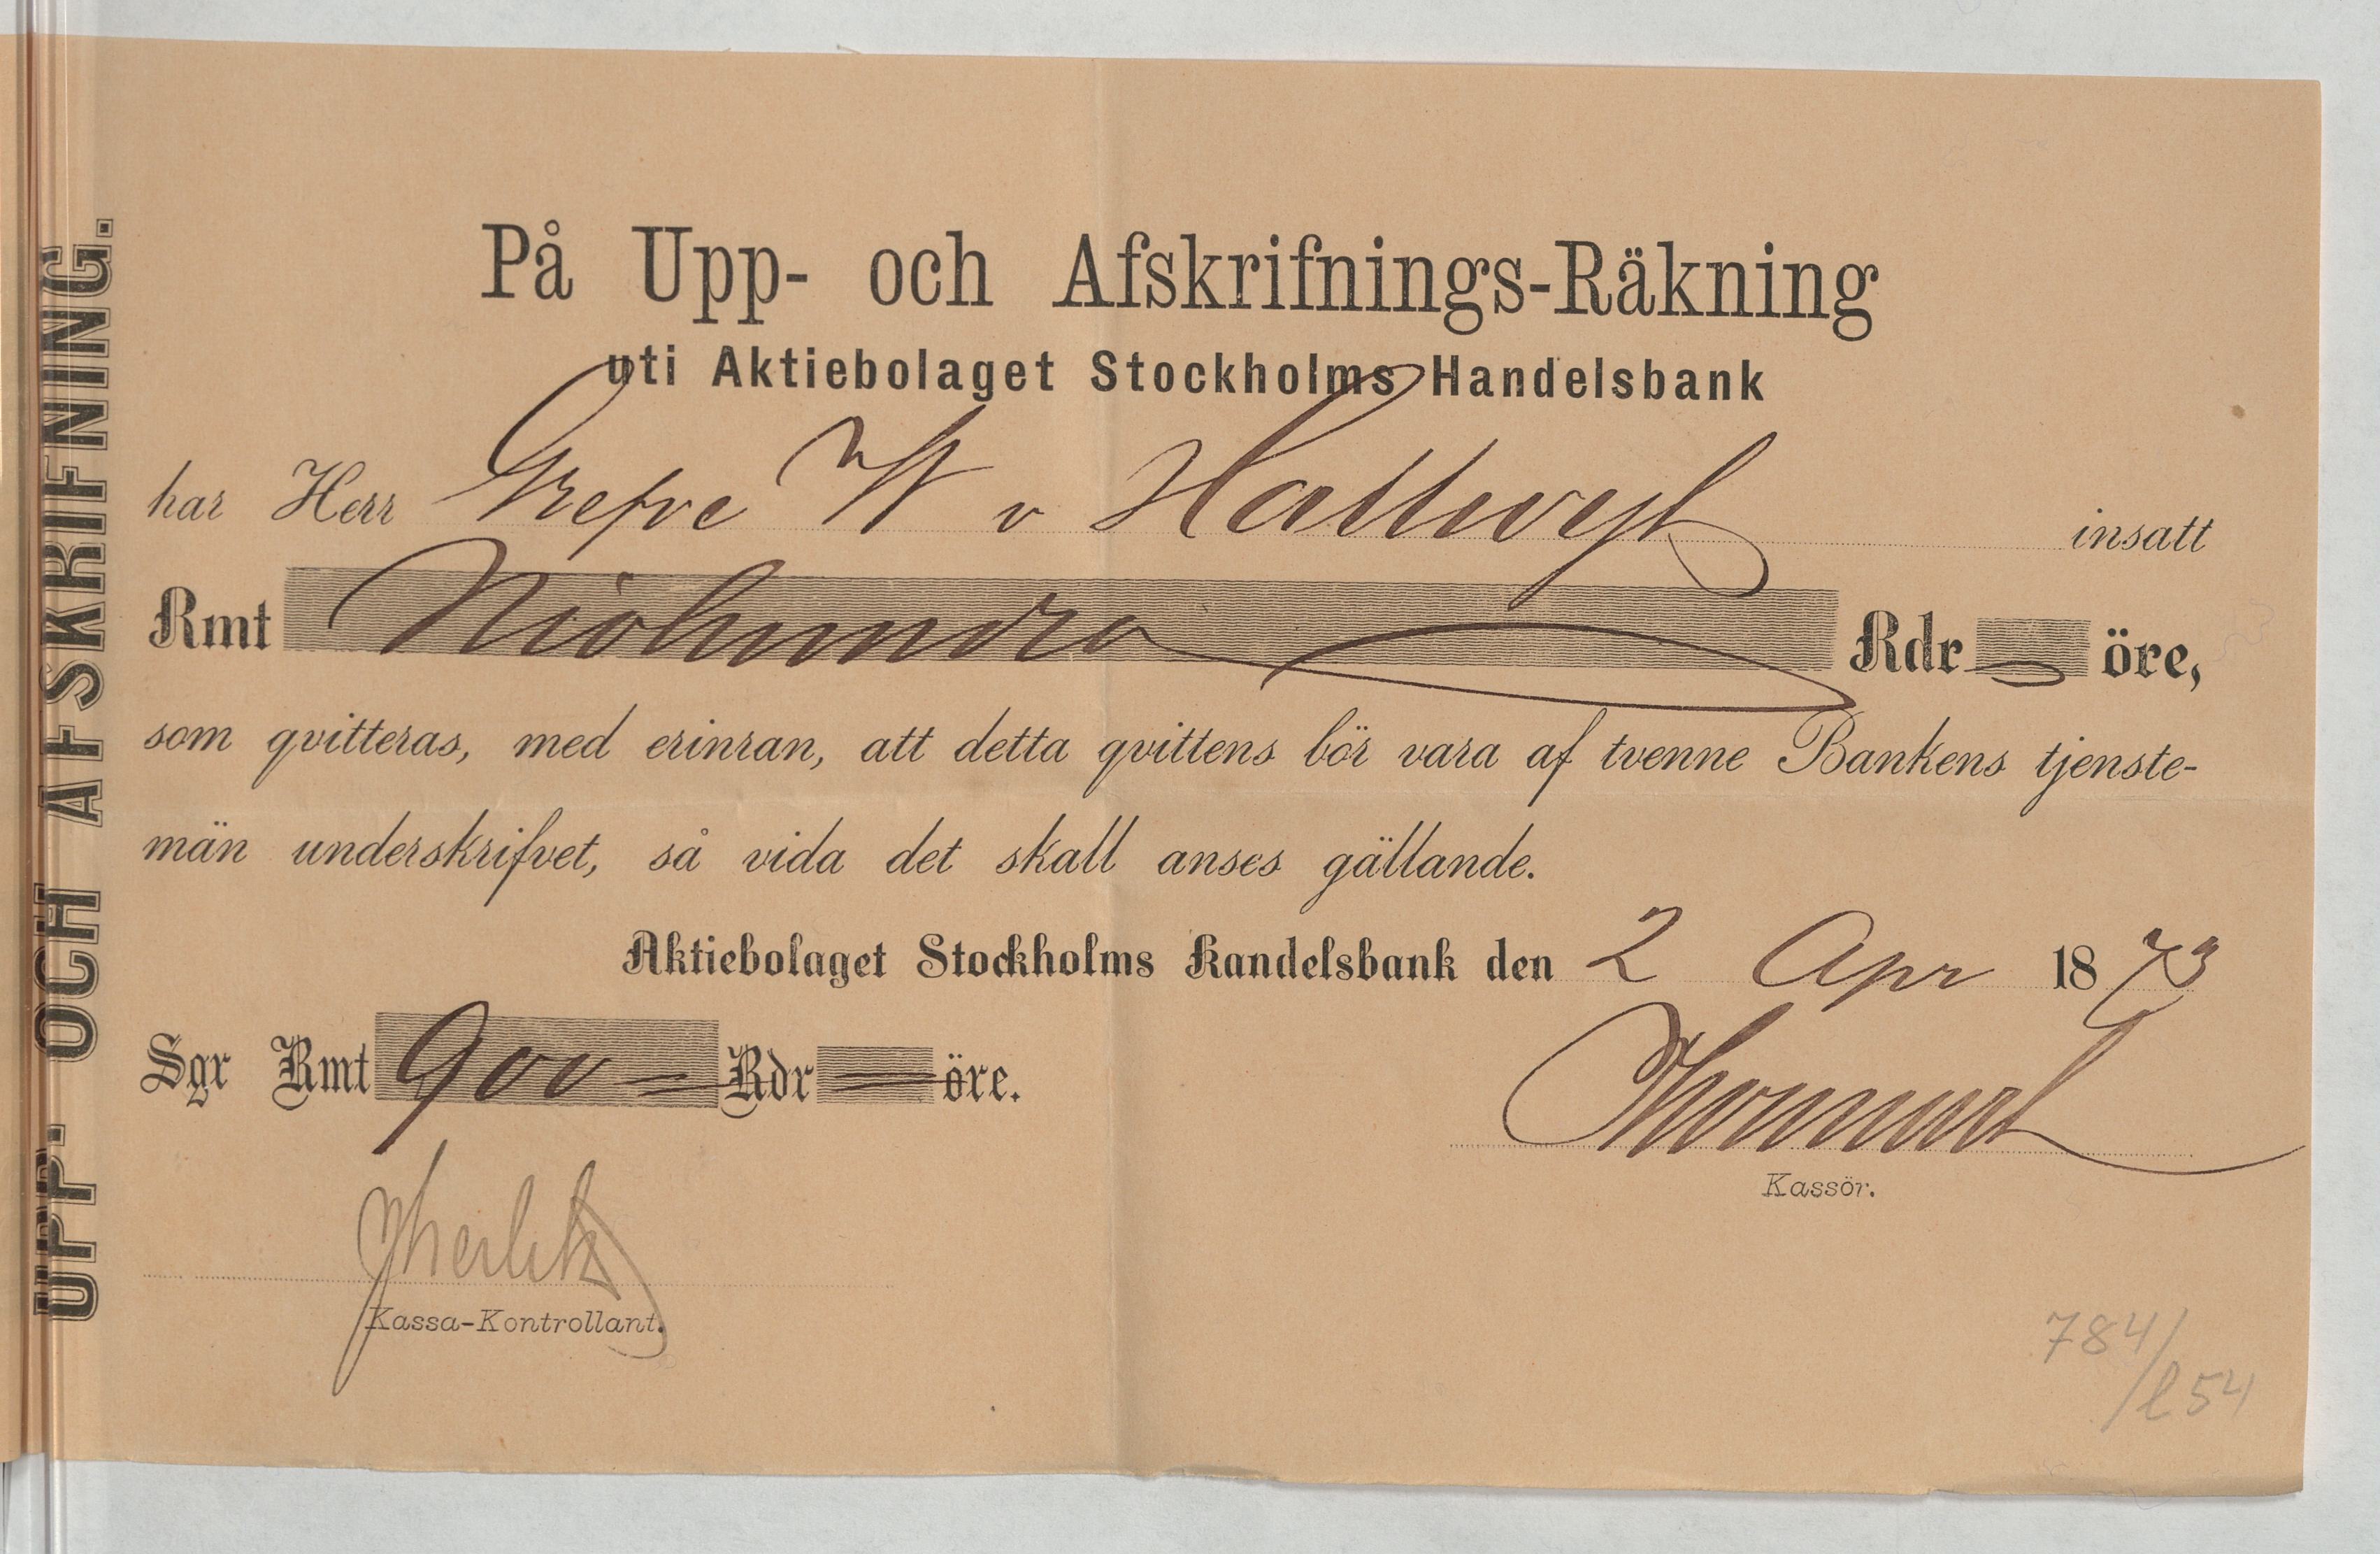 UPP- OCH AFSKRIFNING.
På Upp- och Afskrifnings-Räkning
uti Aktiebolaget Stockholms Handelsbank
har Herr Grefve W v Hallwyl insatt
Rmt Niohundra Rdr öre,
som qvitteras, med erinran, att detta qvittens bör vara af tvenne Bankens tjenste-
män underskrifvet, så vida det skall anses gällande.
Aktiebolaget Stockholms Handelsbank den 2 Apr 1873
Sgr Rmt 900 = Rdr öre.
Kassör.
Kassa-Kontrollant.
784/
/l 54